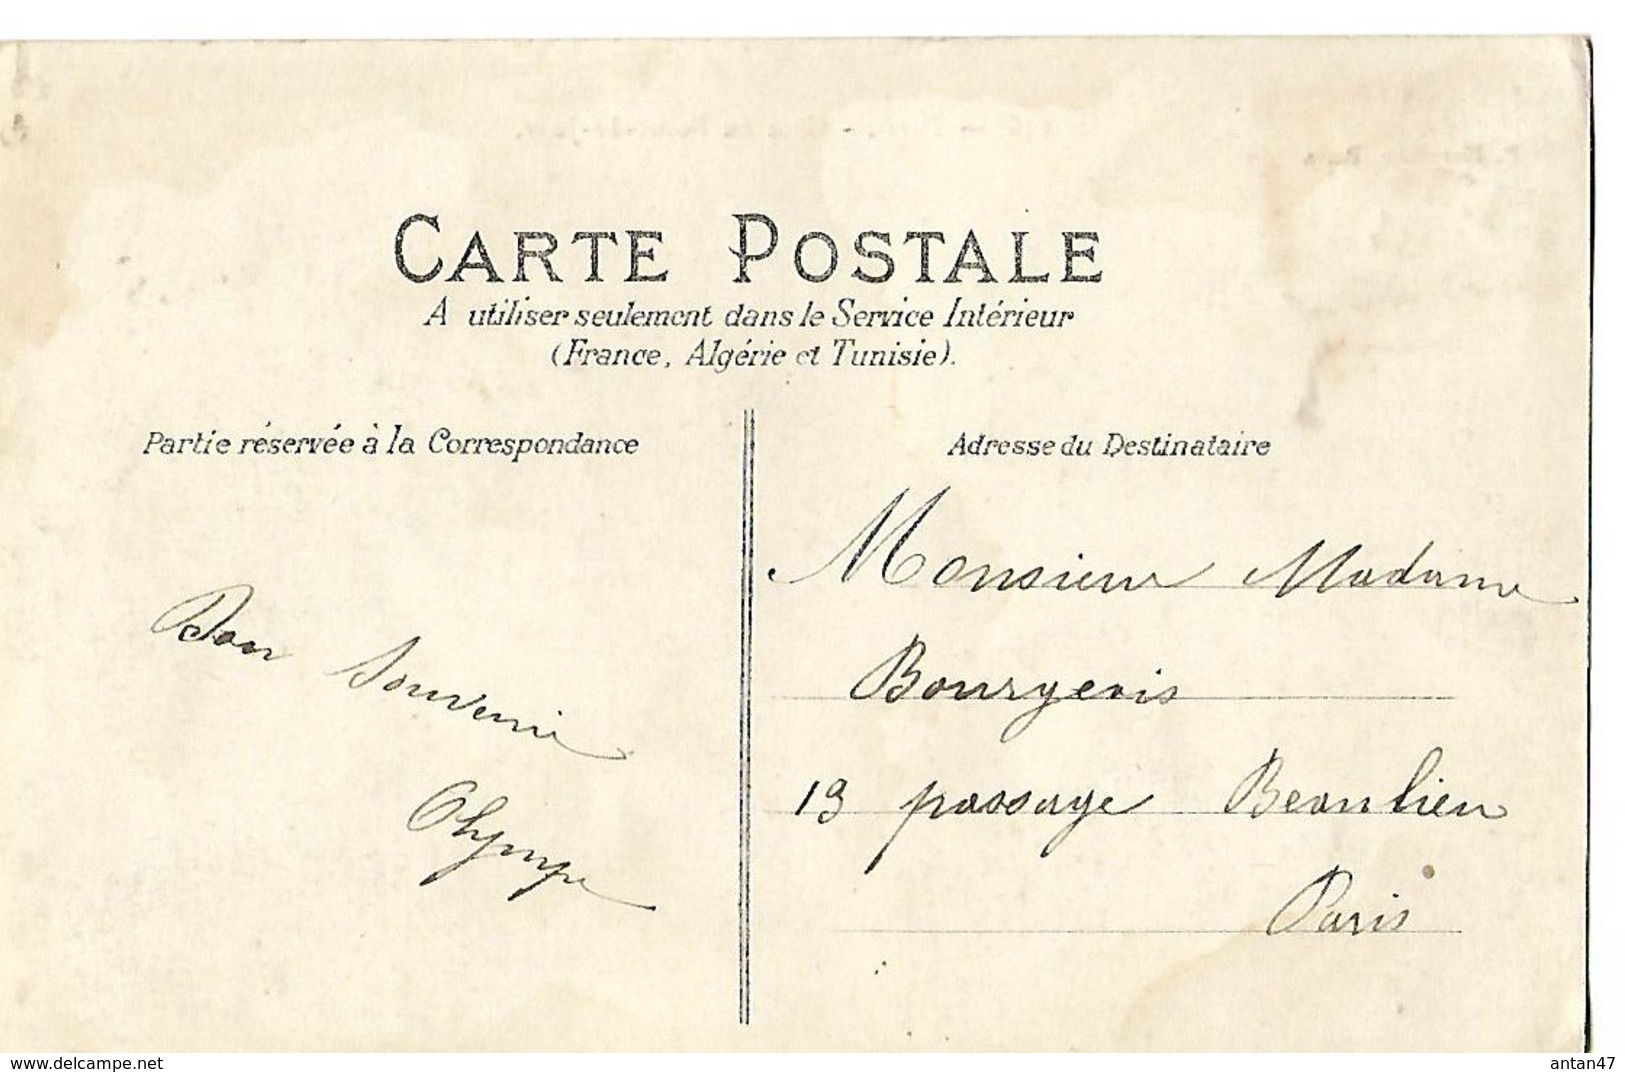 CARTE POSTALE
A utiliser seulement dans le Service Intérieur
(France, Algérie et Tunisie).
Partie réservée à la Correspondance
Bon Souvenir
Olympe
Adresse du Destinataire
Monsieur Madame
Bourgeois
13 passage Beaulieu
Paris
www.delcampe.net
antan47